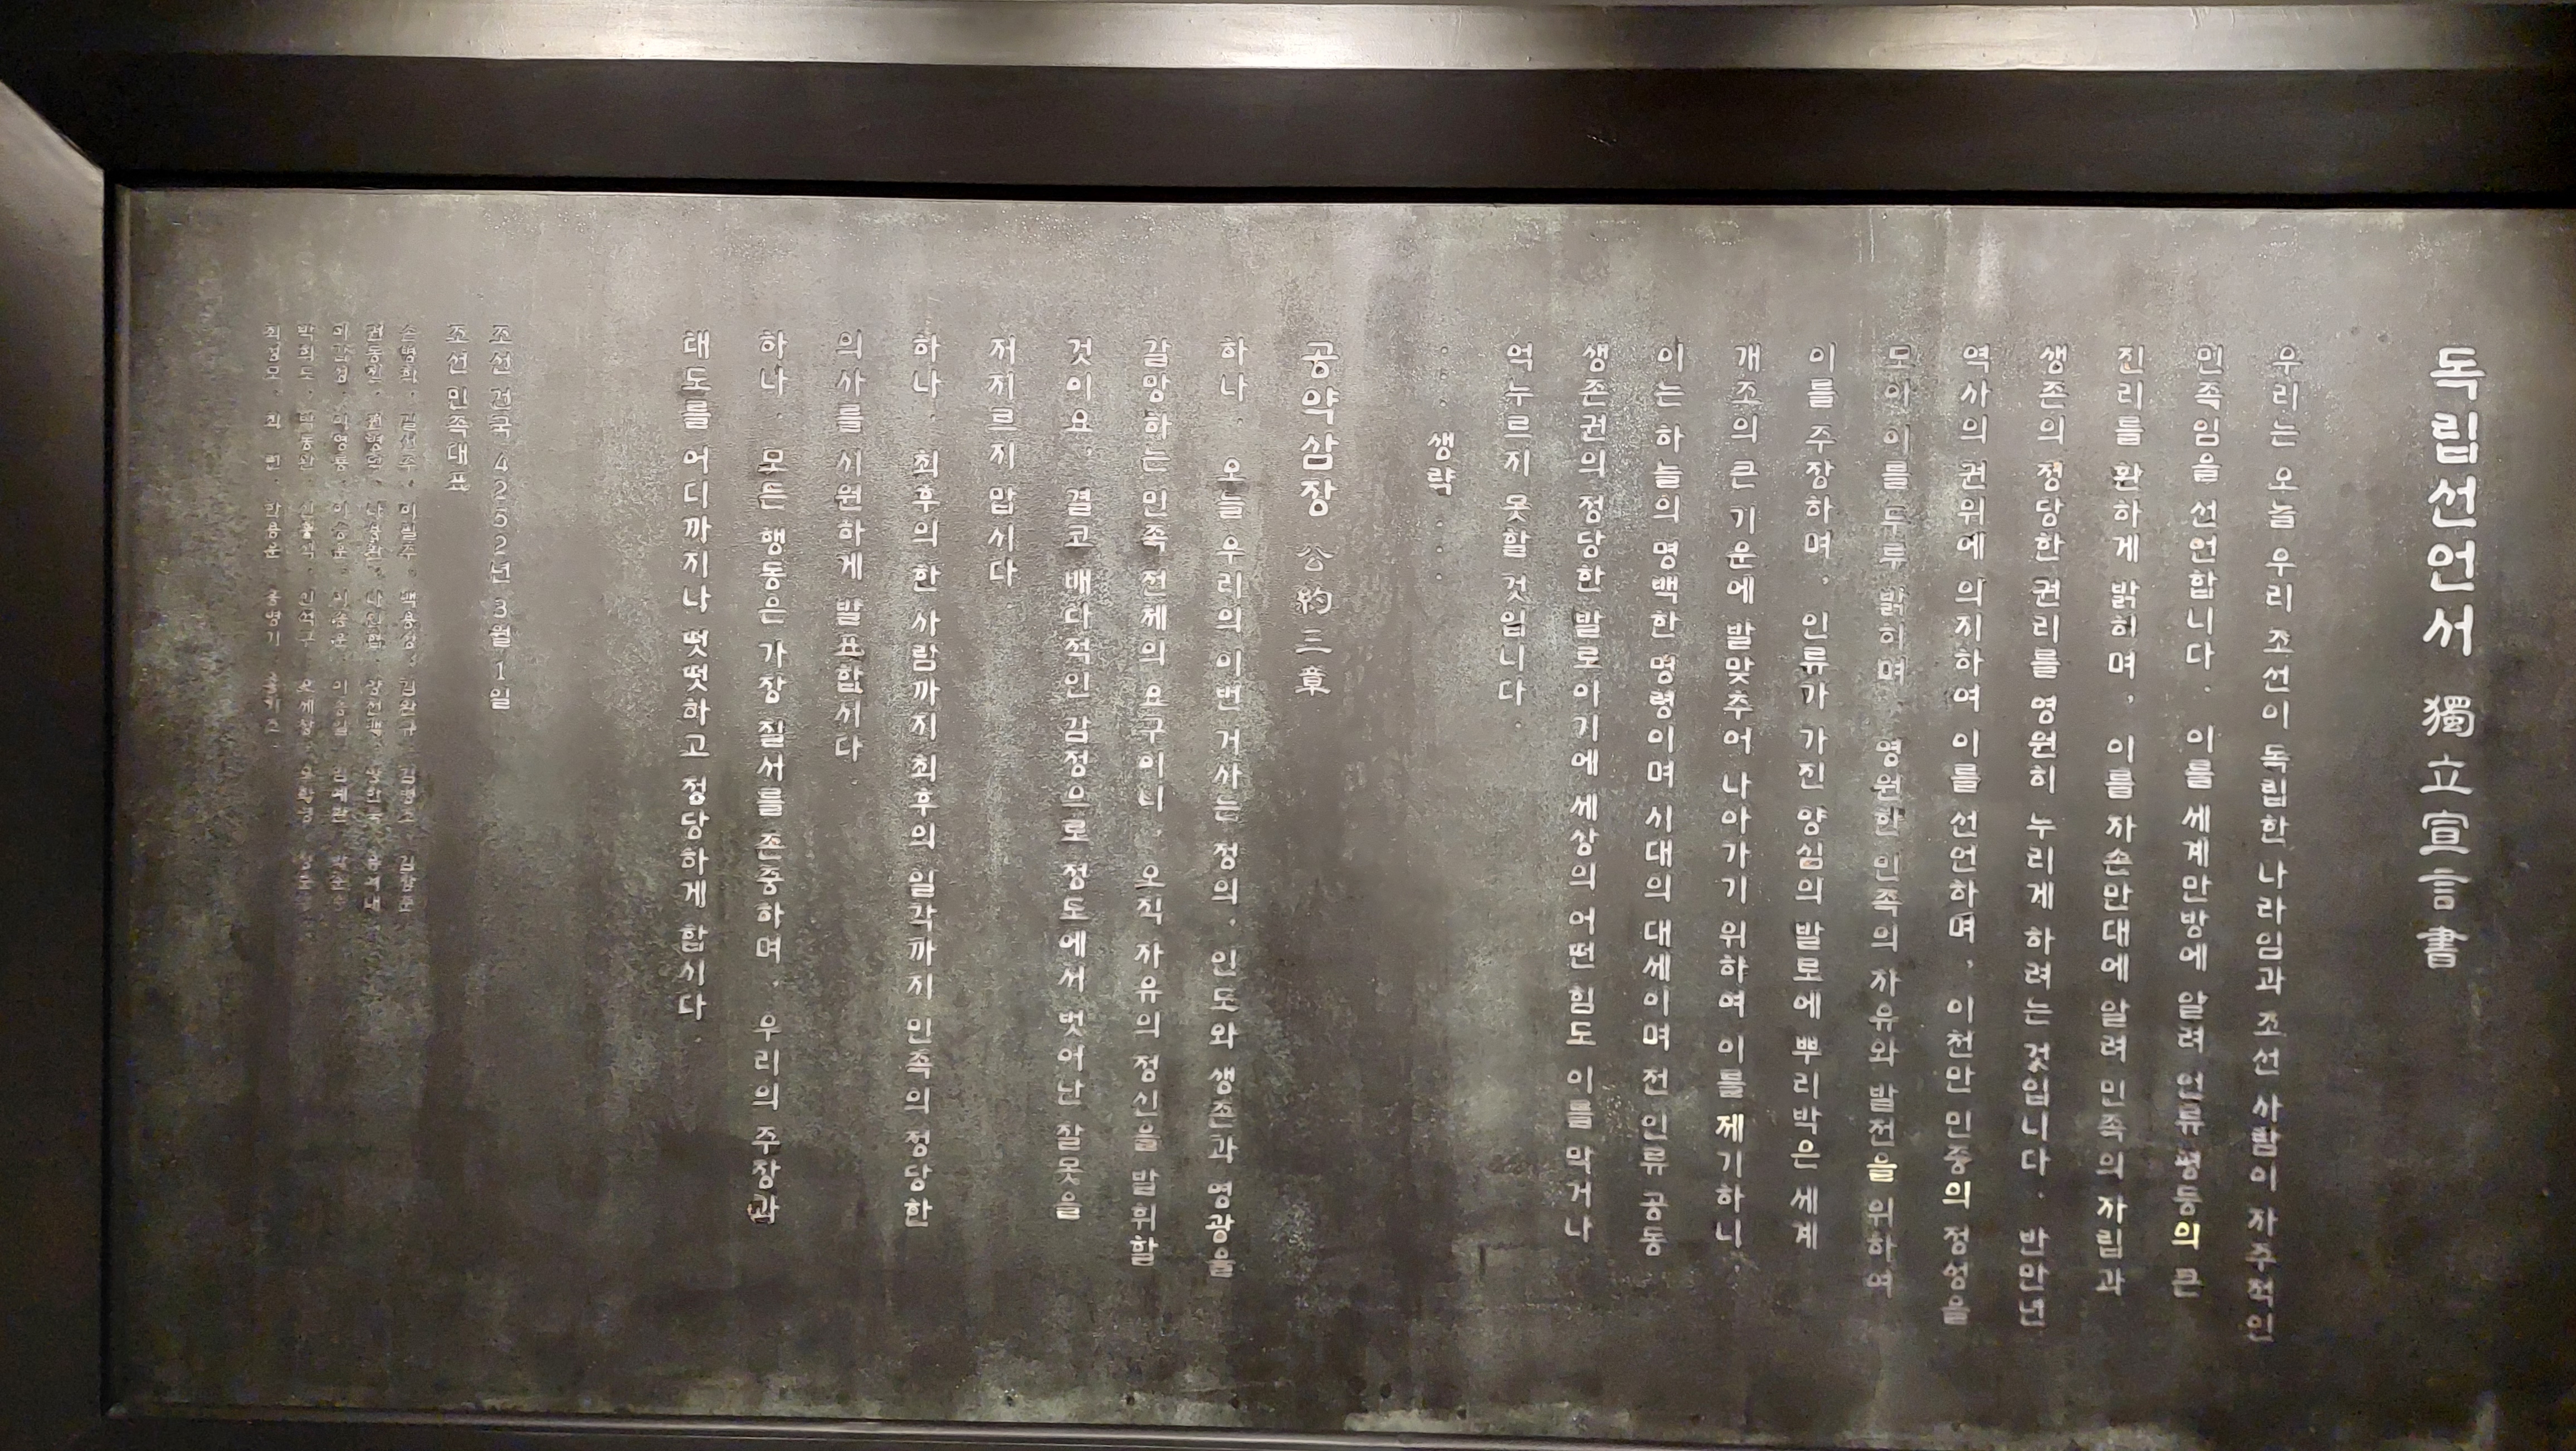 독립선언서 獨立宣言書
우리는 오늘 우리 조선이 독립한 나라임과 조선 사람이 자주적인
민족임을 선언합니다. 이를 세계만방에 알려 인류평등의 큰
진리를 환하게 밝히며, 이를 자손만대에 알려 민족의 자립과
생존의 정당한 권리를 영원히 누리게 하려는 것입니다. 반만년
역사의 권위에 의지하여 이를 선언하며, 이천만 민중의 정성을
모아 이를 두루 밝히며, 영원한 민족의 자유와 발전을 위하여
이를 주장하며, 인류가 가진 양심의 발로에 뿌리박은 세계
개조의 큰 기운에 발맞추어 나아가기 위하여 이를 제기하니,
이는 하늘의 명백한 명령이며 시대의 대세이며 전 인류 공동
생존권의 정당한 발로이기에 세상의 어떤 힘도 이를 막거나
억누르지 못할 것입니다.
...생략...
공약삼장 公約三章
하나. 오늘 우리의 이번 거사는 정의, 인도와 생존과 영광을
갈망하는 민족 전체의 요구이니, 오직 자유의 정신을 발휘할
것이요, 결코 배타적인 감정으로 정도에서 벗어난 잘못을
저지르지 맙시다.
하나. 최후의 한 사람까지 최후의 일각까지 민족의 정당한
의사를 시원하게 발표합시다.
하나. 모든 행동은 가장 질서를 존중하며, 우리의 주장과
태도를 어디까지나 떳떳하고 정당하게 합시다.
조선 건국 4252년 3월 1일
조선 민족대표
손병희, 길선주, 이필주, 백용성, 김완규, 김병조, 김창준
권동진, 권병덕, 나용환, 나인협, 양전백, 양한묵, 유여대
이갑성, 이명룡, 이승훈, 이종훈, 이종일, 임예환, 박준승
박희도, 박동완, 신홍식, 신석구, 오세창, 오화영, 정춘수
최성모, 최 린, 한용운, 홍병기, 홍기조.